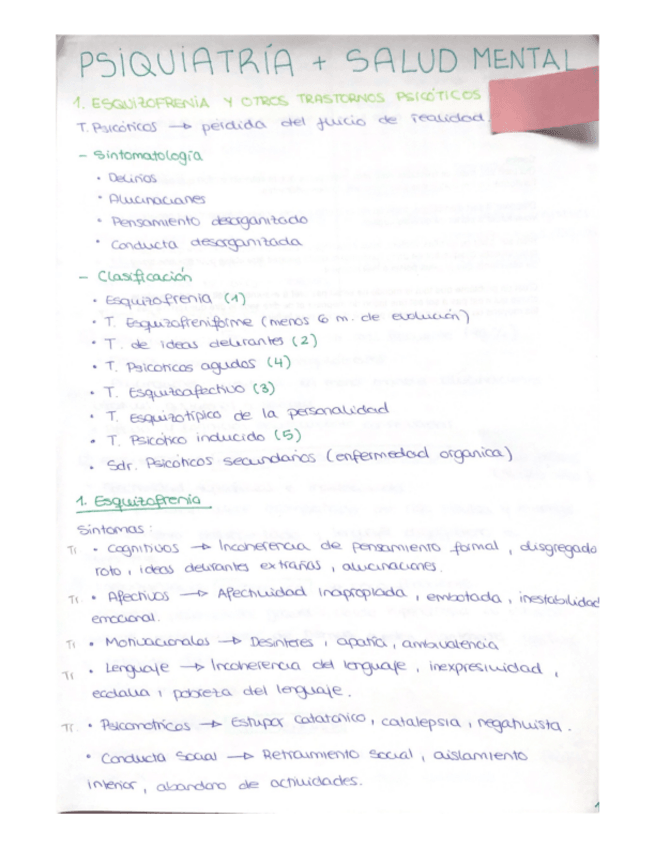 PSIQUIATRÍA + SALUD MENTAL
1. ESQUIZOFRENIA Y OTROS TRASTORNOS PSICÓTICOS
T. Psicóticos → pérdida del juicio de realidad.
- Sintomatología
• Delirios
• Alucinaciones
• Pensamiento desorganizado
• Conducta desorganizada
- Clasificación
• Esquizofrenia (1)
• T. Esquizofreniforme (menos 6 m. de evolución)
• T. de ideas delirantes (2)
• T. Psicóticos agudos (4)
• T. Esquizoafectivo (3)
• T. Esquizotípico de la personalidad
• T. Psicótico inducido (5)
• Sdr. Psicóticos secundarios (enfermedad orgánica)
1. Esquizofrenia
Síntomas:
• Cognitivos → Incoherencia de pensamiento formal, disgregado
roto, ideas delirantes extrañas, alucinaciones.
• Afectivos → Afectividad inapropiada, embotada, inestabilidad
emocional.
• Motivacionales → Desinterés, apatía, ambivalencia
• Lenguaje → Incoherencia del lenguaje, inexpresividad,
ecolalia, pobreza del lenguaje.
• Psicomotricos → Estupor catatónico, catalepsia, negativista.
• Conducta Social → Retraimiento social, aislamiento
interior, abandono de actividades.